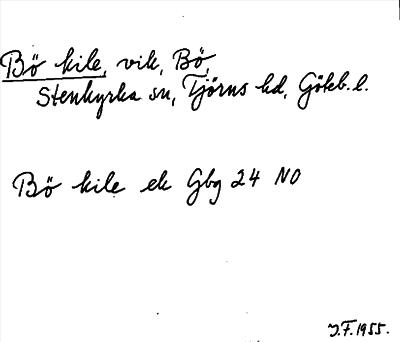 Bö kile, vik, Bö,
Stenkyrka sn, Tjörns hd, Göteb. l.
Bö kile ek Gbg 24 NO
J.F. 1955.